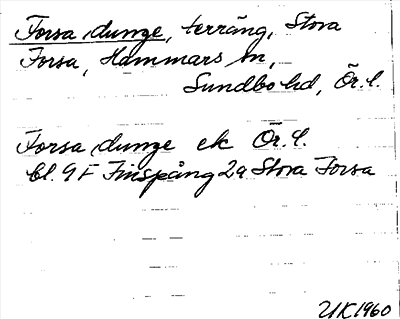 Forsa dunge, terräng, Stora
Forsa, Hammars sn,
Sundbo hd, Ör. l.
Forsa dunge ek Ör. l.
bl. 9 F Finspång 2a Stora Forsa
UK 1960